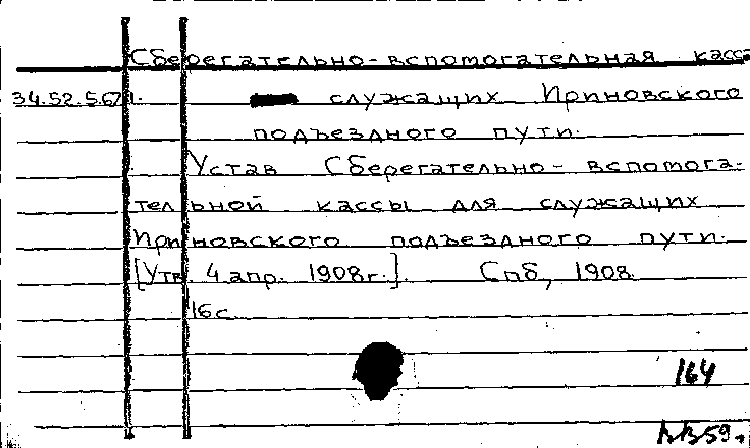 Сберегательно-вспомогательная касса
34.52.5.67 1. служащих Ириновского
подъездного пути.
Устав Сберегательно-вспомога-
тельной кассы для служащих
Ириновского подъездного пути.
[Утв. 4 апр. 1908 г.]. Спб, 1908
16 с
164